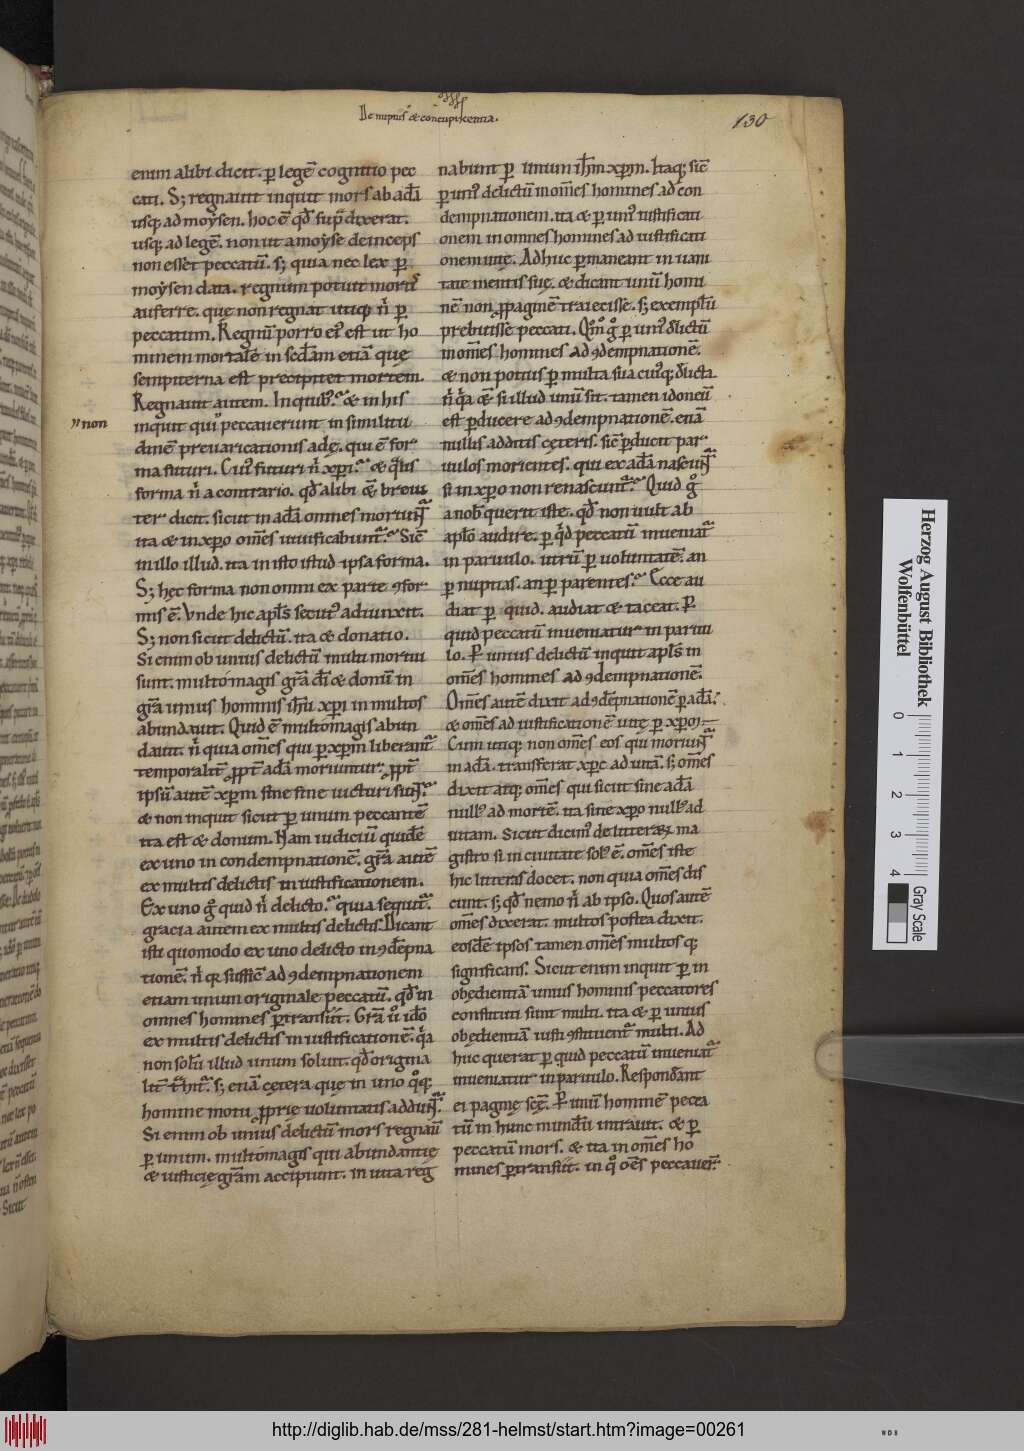 De nuptiis & concupiscentia.
130
enim alibi dicit. p̱ legē cognitio pec
cati. S; regnauit inquit mors ab adā
usq; ad moẏsen. hoc ē qd̄ sup̄ dixerat.
usq; ad legē. non ut a moẏse deinceps
non esset peccatū. s; quia nec lex p̱
moẏsen data. regnum potuit mortis
auferre. quę non regnat utiq; n̄ p̱
peccatum. Regnū porro ei᷒ est ut ho
minem mortalē in scd̄am etiā quę
sempiterna est precipitet mortem.
Regnauit autem. In quib᷒? & in his
non
inquit qui peccauerunt in similitu
dinē preuaricationis adę. qui ē for
ma futuri. Cui᷒ futuri n̄ xp̄i? & q̄lis
forma n̄ a contrario. qd̄ alibi &̄ breui
ter dicit. sicut in adā omnes moriunt᷒
ita & in xp̄o om̄s uiuificabunt᷒. Sic̄
in illo illud. ita in isto istud ipsa forma.
S; hęc forma non omni ex parte ꝯfor
mis ē. Vnde hic apl̄s secut᷒ adiunxit.
S; non sicut delictū. ita & donatio.
Si enim ob unius delictū multi mortui
sunt. multo magis gr̄a dī & donū in
gr̄a unius hominis ih̄u xp̄i in multos
abundauit. Quid ē multo magis abun
dauit. n̄ quia om̄s qui p̱ xp̄m liberant᷒
temporalit̄ ꝓpt̄ adā moriuntur. ꝓpt̄
ipsū autē xp̄m sine fine uicturi sunt.
& non inquit sicut p̱ unum peccantē
ita est & donum. Nam iudiciū quidē
ex uno in condempnationē. gr̄a autē
ex multis delictis in iustificationem.
Ex uno g° quid n̄ delicto? quia sequit᷒.
gracia autem ex multis delictis. Dicant
isti quomodo ex uno delicto in ꝯdēpna
tionē. n̄ q̄ suffic̄ ad ꝯdempnationem
etiam unum originale peccatū. qd̄ in
omnes homines p̱transiit. Gr̄a u° id̄o
ex multis delictis in iustificationē. q̄a
non solū illud unum soluit. qd̄ origina
lit̄ t̄hit᷒. s; etiā cętera quę in uno q°q;
homine motu ꝓprię uoluntatis addunt᷒.
Si enim ob unius delictū mors regnauit
p̱ unum. multo magis qui abundantię
& iusticię gr̄am accipiunt. in uita reg
nabunt p̱ unum ih̄m xp̄m. Itaq; sic̄
p̱ uni᷒ delictū in om̄s homines ad con
dempnationem. ita & p̱ uni᷒ iustificati
onem in omnes homines ad iustificati
onem uitę. Adhuc p̱maneant in uani
tate mentis suę. & dicant unū homi
nē non ꝓpaginē traiecisse. s; exemplū
prebuisse peccati. Q°m° g° p̱ uni᷒ delictū
in om̄s homines ad ꝯdempnationē.
& non potius p̱ multa sua cuiq; delicta
n̄ q̄a &̄ si illud unū sit. tamen idoneū
est p̱ducere ad ꝯdempnationē. etiā
nullis additis cęteris. sic̄ p̱ducit par
uulos morientes. qui ex adā nascunt᷒
si in xp̄o non renascunt᷒? Quid g°
a nob᷒ querit iste. qd̄ non uult ab
apl̄o audire. p̱ q̄d peccatū inueniat᷒
in paruulo. utrū p̱ uoluntatē. an
p̱ nuptias. an p̱ parentes? Ecce au
diat p̱ quid. audiat & taceat. P̱
quid peccatū inueniatur in paruu
lo. P̱ unius delictū inquit apl̄s in
om̄s homines ad ꝯdempnationē.
Om̄s autē dixit ad ꝯdēpnationē p̱ adā.
& om̄s ad iustificationē uitę p̱ xp̄m.
Cum utiq; non om̄s eos qui moriunt᷒
in adā. transferat xp̄c ad uitā. s; om̄s
dixit atq; om̄s qui sicut sine adā
null᷒ ad mortē. ita sine xp̄o null᷒ ad
uitam. Sicut dicim᷒ de litterarꝝ ma
gistro si in ciuitate sol᷒ ē. om̄s iste
hic litteras docet. non quia om̄s dis
cunt. s; qd̄ nemo n̄ ab ipso. Quos autē
om̄s dixerat. multos postea dixit.
eosdē ipsos tamen om̄s multos q;
significans. Sicut enim inquit p̱ in
obędientiā unius hominis peccatores
constituti sunt multi. ita & p̱ unius
obędientiā iusti ꝯstituent᷒ multi. Ad
huc querat p̱ quid peccatū inueniat᷒
inueniatur in paruulo. Respondant
ei paginę scę̄. P̱ unū hominē pecca
tū in hunc mundū intrauit. & p̱
peccatū mors. & ita in om̄s ho
mines p̱transiit. in q° om̄s peccauer̄
Herzog August Bibliothek
Wolfenbüttel
0 1 2 3 4
Gray Scale
http://diglib.hab.de/mss/281-helmst/start.htm?image=00261